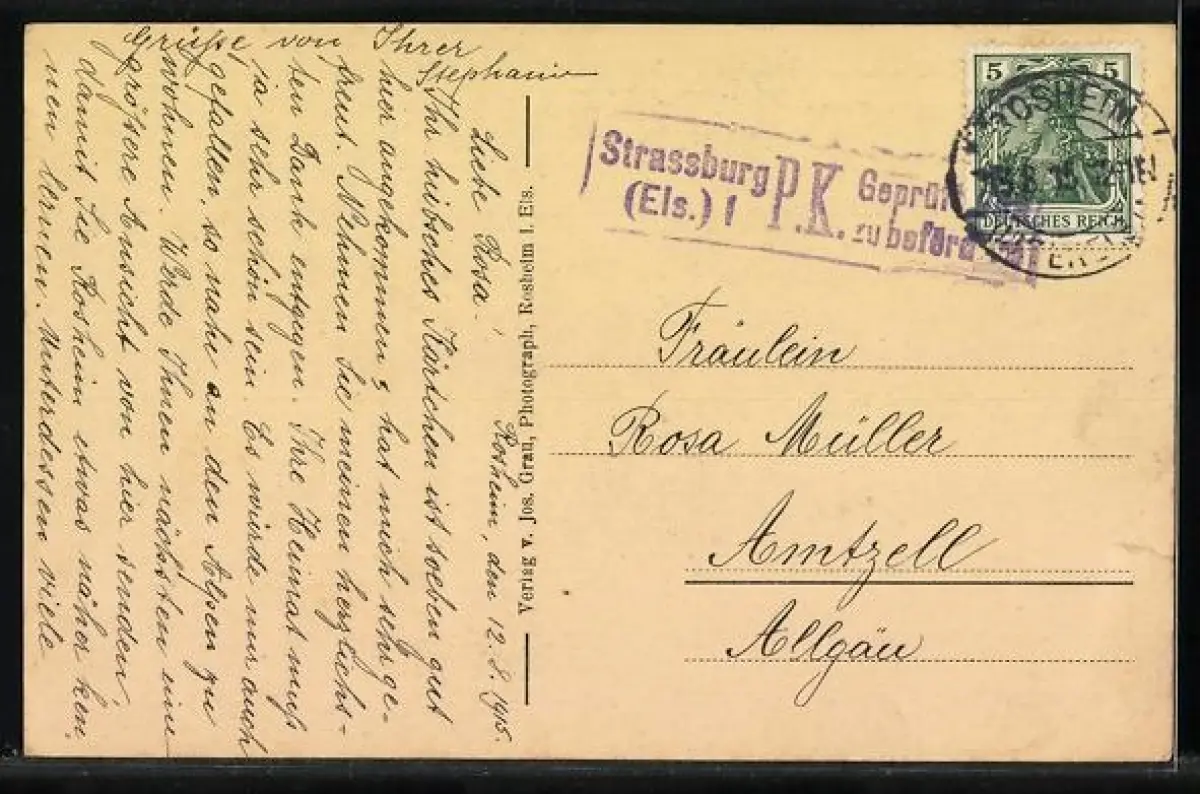 Rosheim, den 12.8.1915.
Liebe Rosa!
Ihr hübsches Kärtchen ist soeben gut
hier angekommen, hat mich sehr ge-
freut. Nehmen Sie meinen herzlichs-
ten Dank entgegen. Ihre Heimat muß
ja sehr schön sein. Es würde mir auch
gefallen so nahe an den Alpen zu
wohnen. Werde Ihnen nächsten eine
größere Ansicht von hier senden,
damit Sie Rosheim etwas näher ken,
nen lernen. Unterdessen viele
Grüße von Ihrer
Stephanie
Verlag v. Jos. Grall, Photograph, Rosheim i. Els.
Strassburg
(Els.) 1
P.K.
Geprüft
zu beförd
5 5
DEUTSCHES REICH
ROSHEIM
Fräulein
Rosa Müller
Amtzell
Allgäu